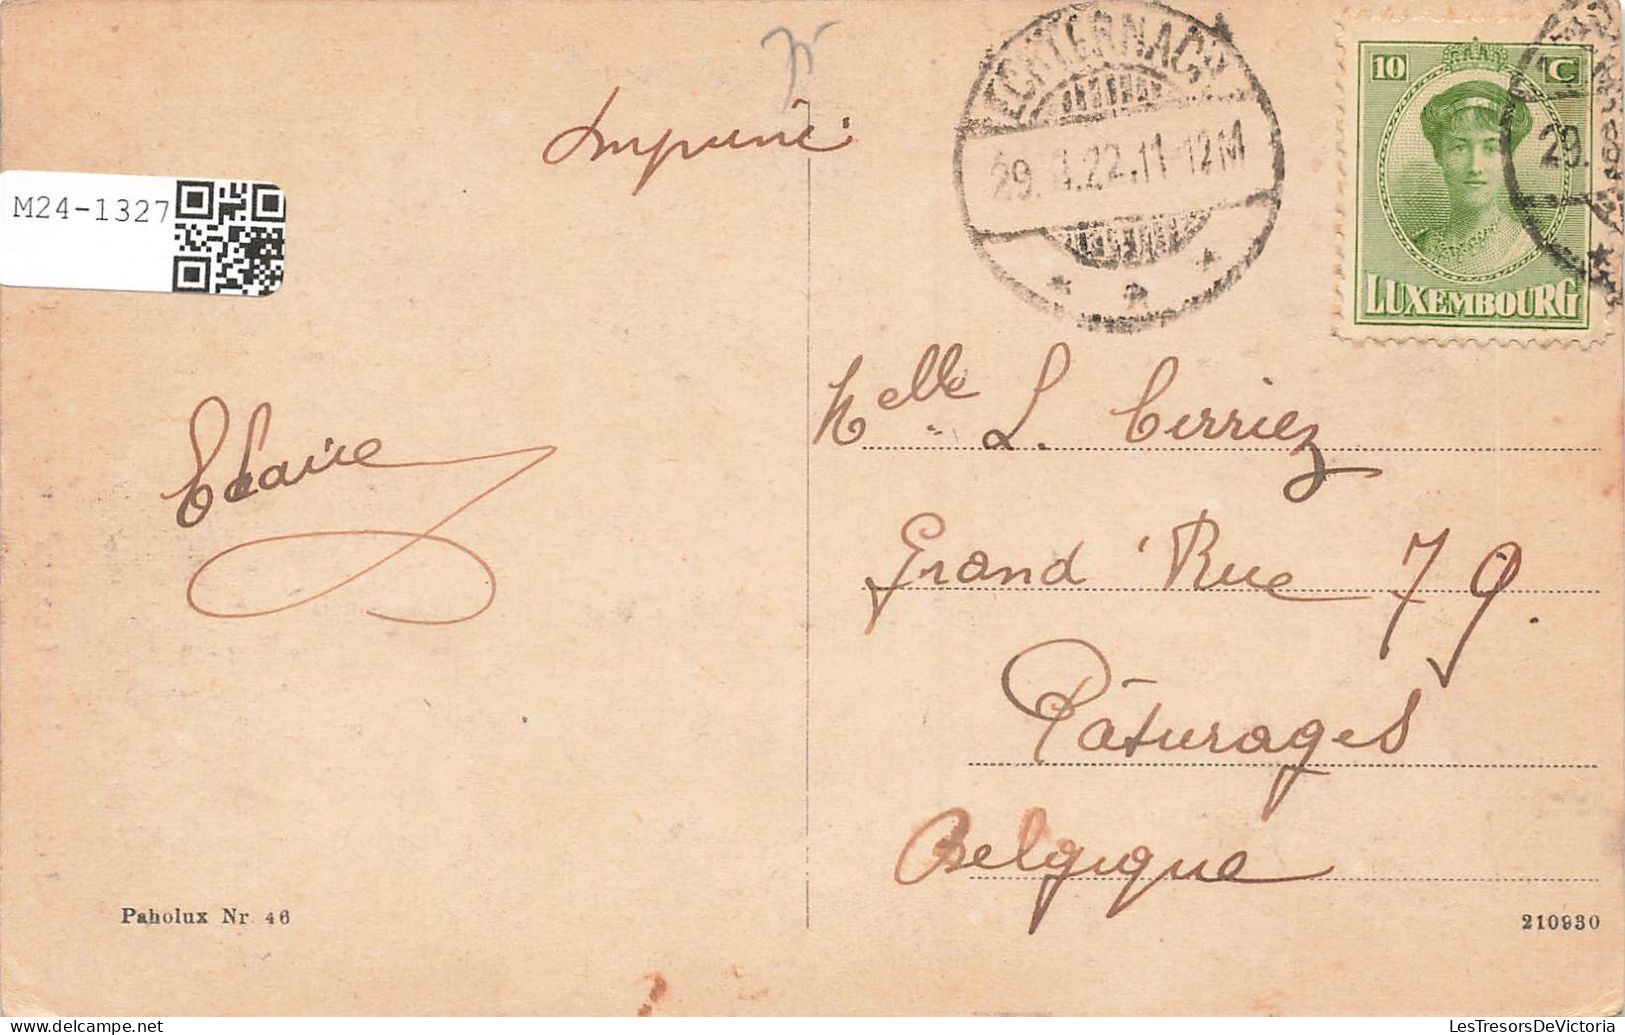 ECHTERNACH
29. .22.11-12M
10 C
29.
LUXEMBOURG
Imprimé
M24-1327
Melle L. Cerriez
Claire
Grand'Rue 79.
Pâturages
Belgique
Paholux Nr. 46
210930
LesTresorsDeVictoria